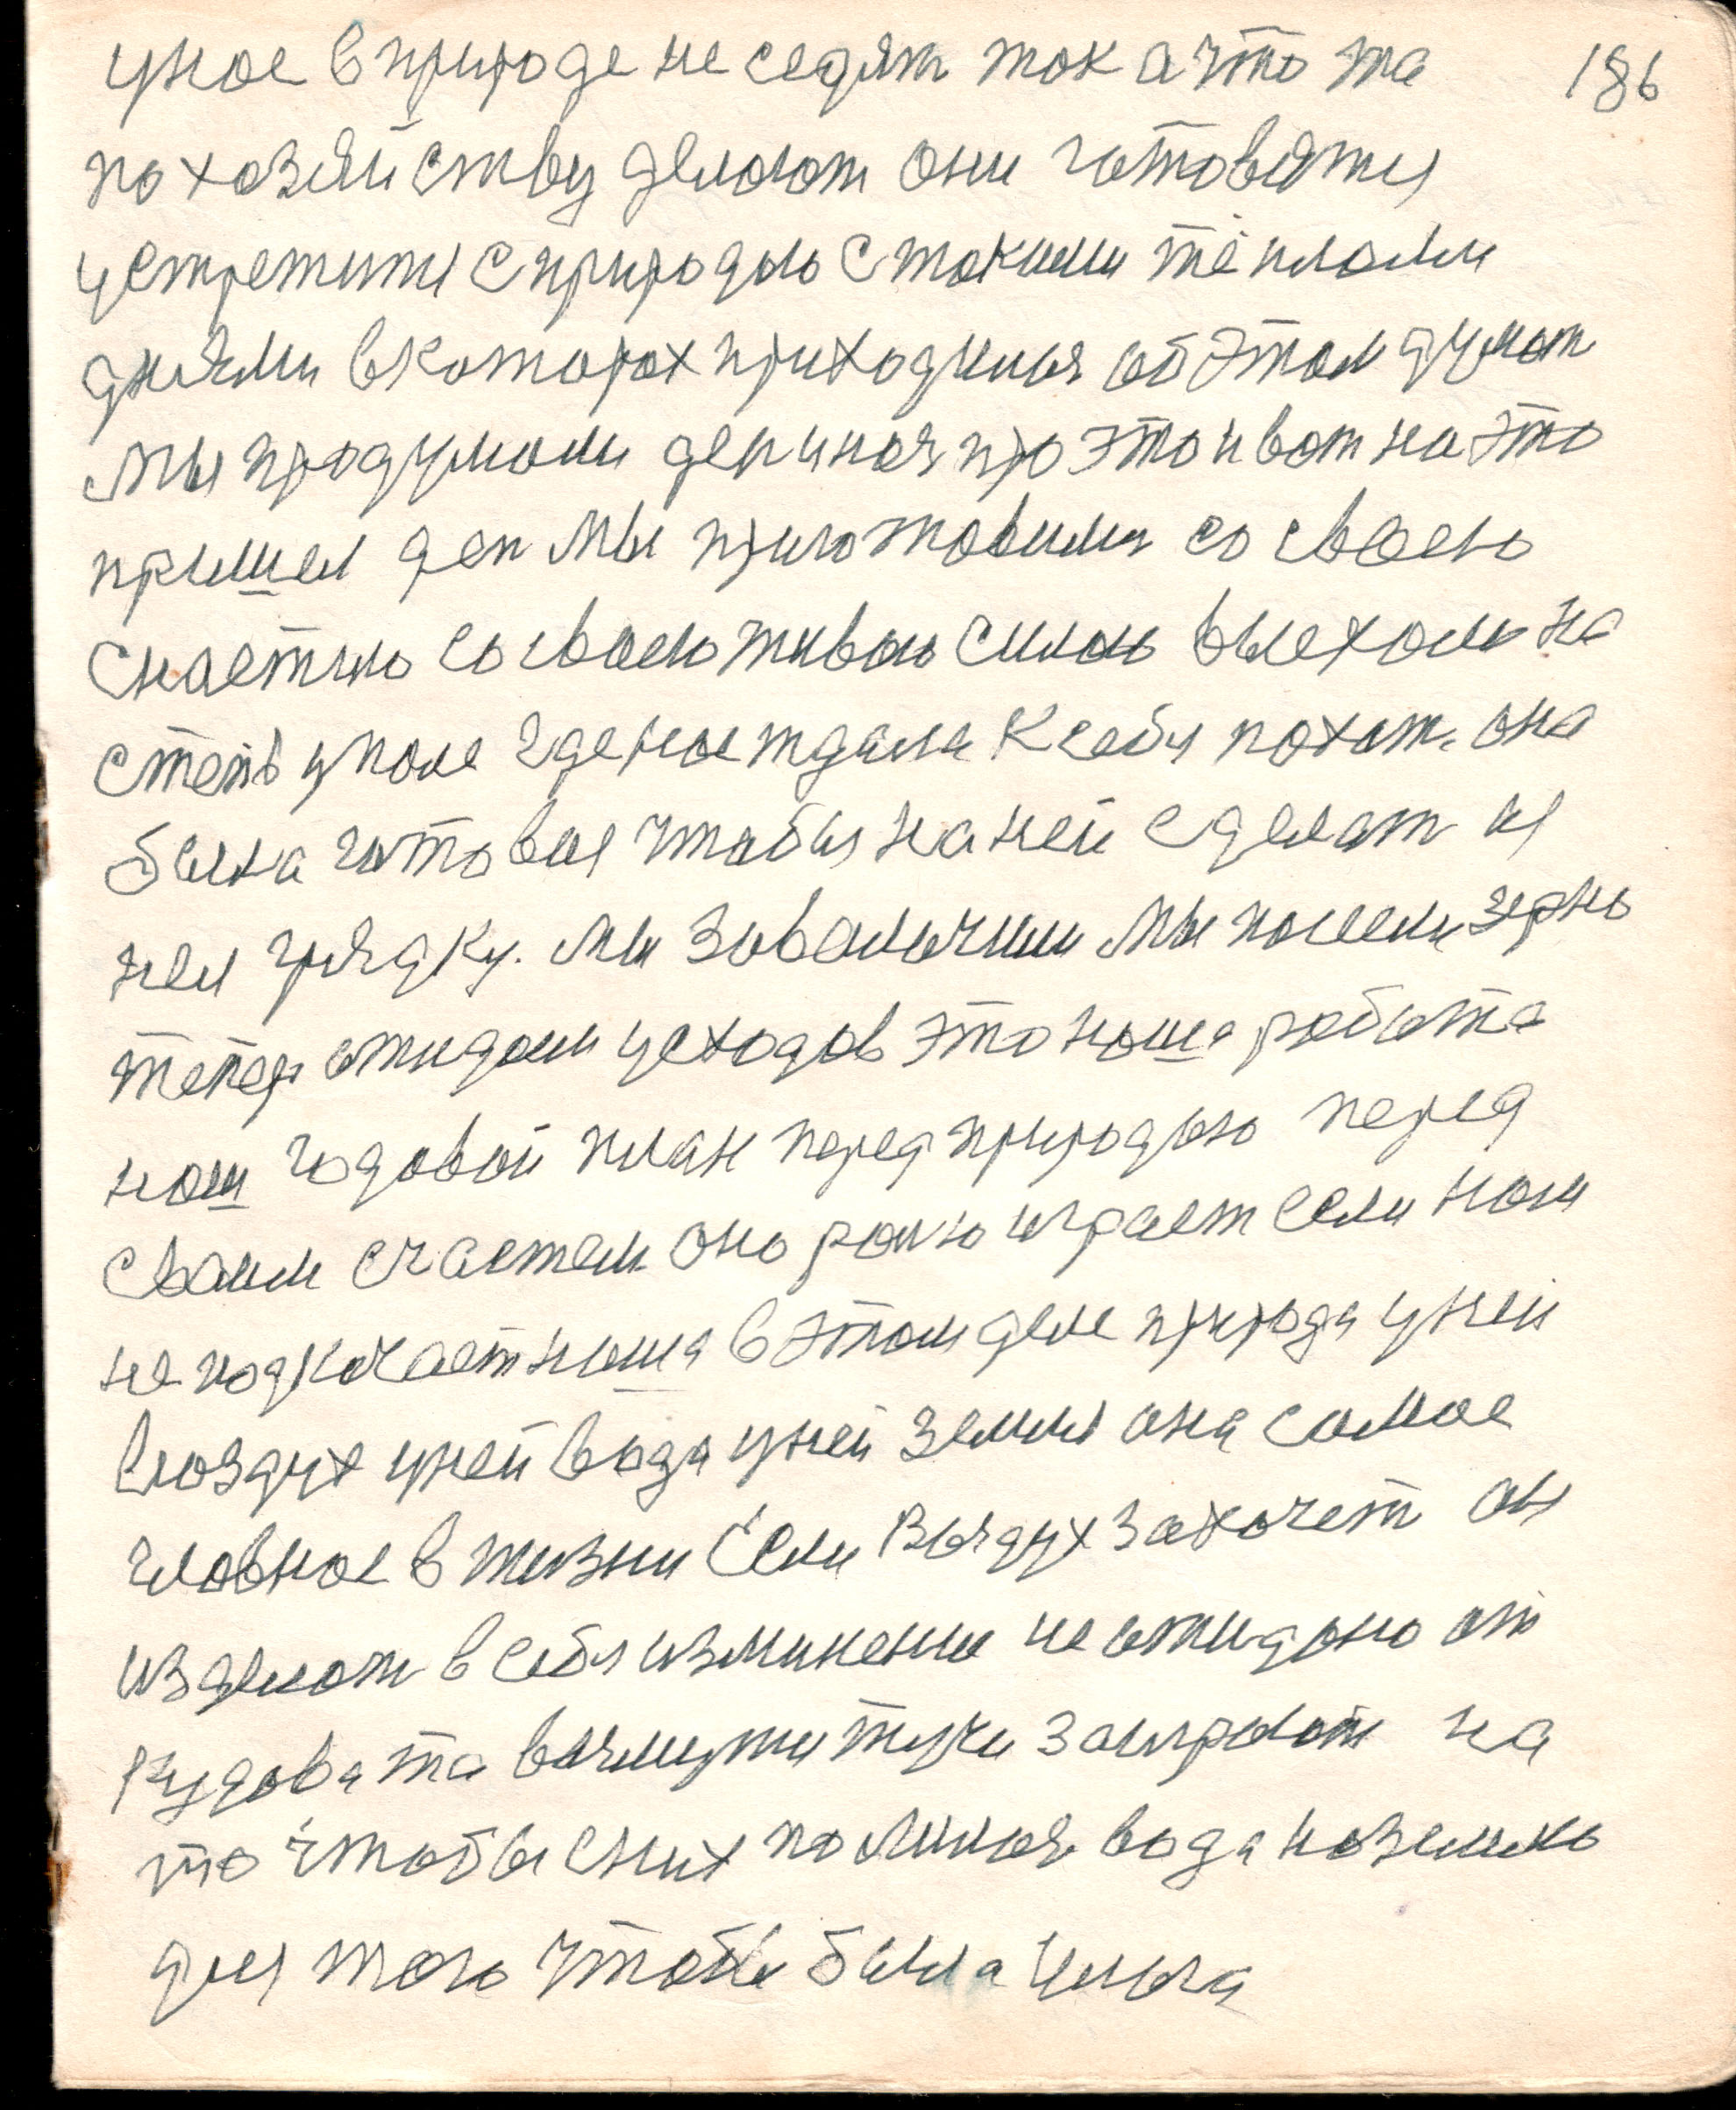 уное в природе не седят так а что та 186
по хозяйству делают они готовятся
устретится с природою с такими тёплами
днями в каторах приходится об этом думат
мы продумали деп иноя про это и вот на это
пришел ден мы приготовилися со своею
снастию со своею живою силою выехали на
степь у поле где нас ждала к себя пахат. она
была готовая чтобы на ней сделат и
ней грядку. мы заволочили мы посеели зерно
тепер ожидаем усходов это наша работа
наш годовой план перед природою перед
своим счастем оно ролю играет если нам
не подкачает наша в этом деле природа у ней
воздух у ней вода у ней земля она самое
главное в жизни Если Воздух захочет он
изделает в себя изминение не ожидано от
кудова та возмутся тучи заиграют на
то чтобы с них полился вода на землю
для того чтобы была